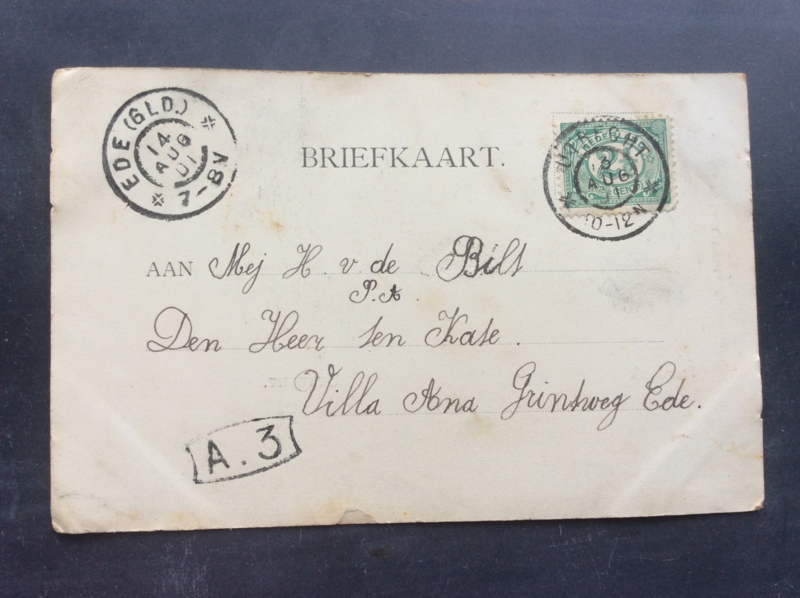 EDE (GLD.)
14
AUG
01
7-8V
BRIEFKAART.
UTRECHT
AUG
10-12N
AAN Mej H. v. de Bilt
P.A.
Den Heer ten Kate.
Villa Ana Grintweg Ede.
A.3